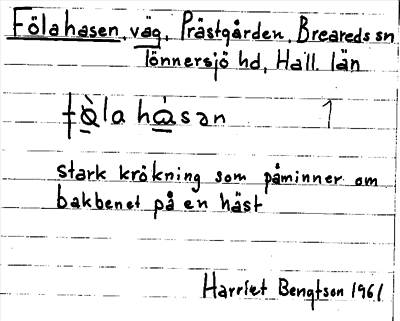 Fölahasen, väg, Prästgården, Breareds sn
Tönnersjö hd, Hall. län
fö̀la hàsən 1
stark krökning som påminner om
bakbenet på en häst
Harriet Bengtson 1961